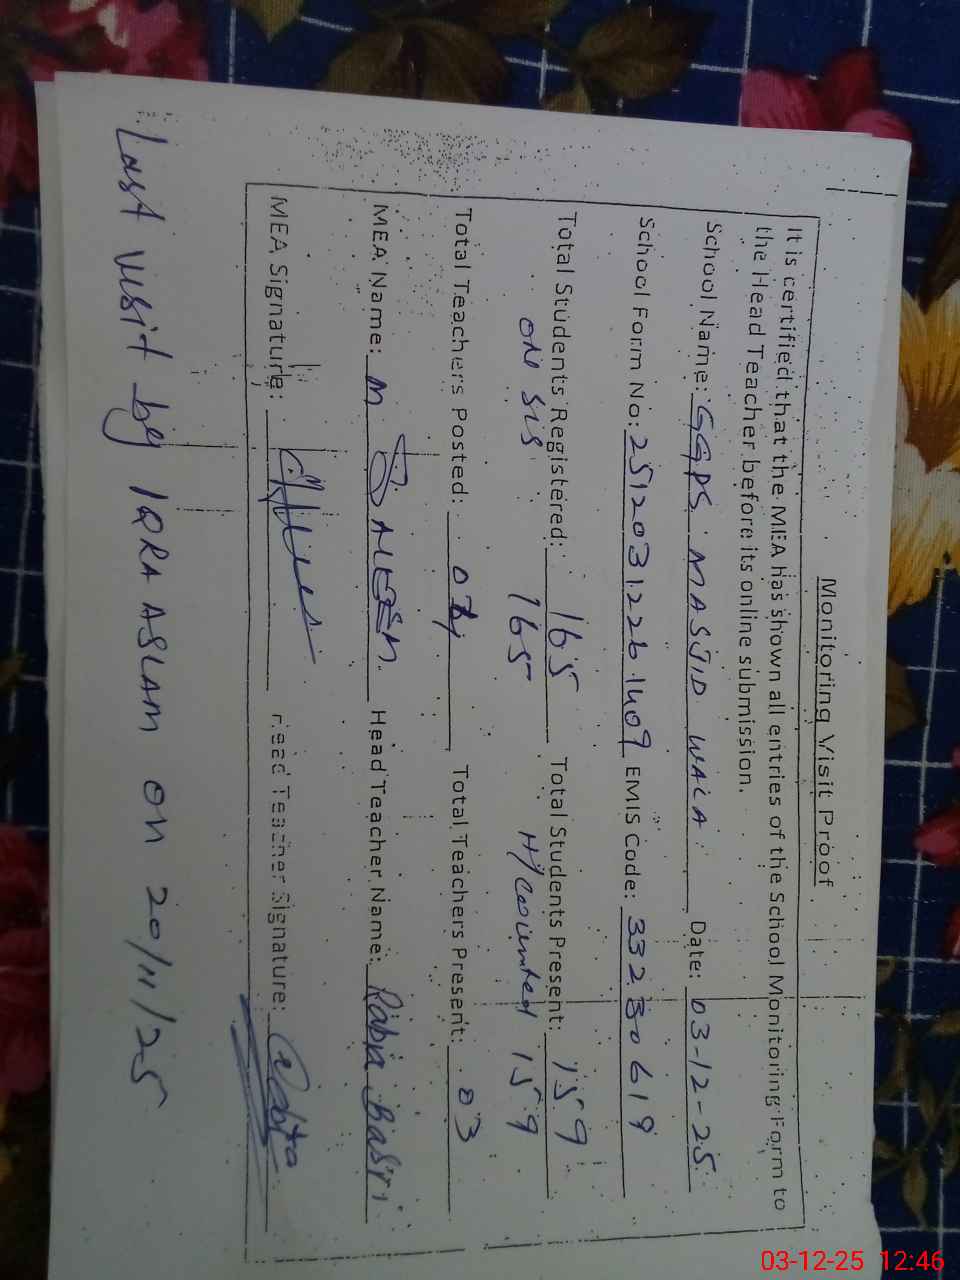 Monitoring Visit Proof
It is certified that the MEA has shown all entries of the School Monitoring Form to
the Head Teacher before its online submission.
School Name: GGPS MASJID WALA Date: 03-12-25
School Form No: 25120312261409 EMIS Code: 33230619
Total Students Registered: 165 Total Students Present: 159
ON SIS 165 H/counted 159
Total Teachers Posted: Total Teachers Present: 03
MEA Name: M Head Teacher Name: Basri
MEA Signature: Head Teacher Signature:
Last visit by IQRA ASLAM on 20/11/25
03-12-25 12:46